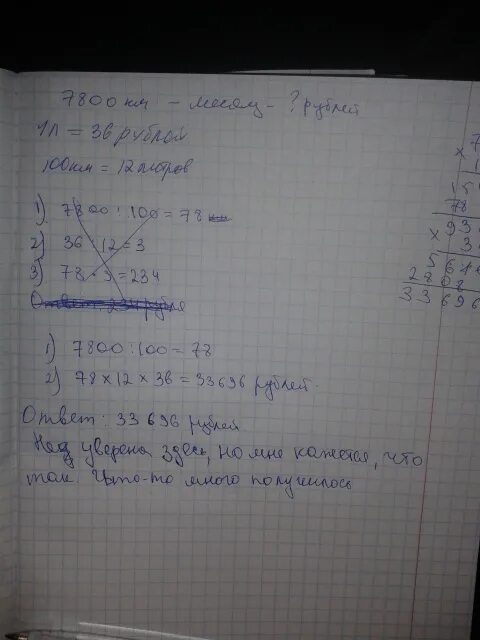 7800 км – месяц – ? рублей
1л = 36 рублей
100км = 12 литров
1) 7800 : 100 = 78
2) 36 : 12 = 3
3) 78 · 3 = 234
Ответ: 234 рубля
1) 7800 : 100 = 78
2) 78 x 12 x 36 = 33696 рублей.
Ответ: 33 696 рублей
уверена здесь, но мне кажется, что
так. Что-то много получилось
7
x 1
15
78
936
x 3
5 6 1
2 8 0 8
3 3 6 9 6